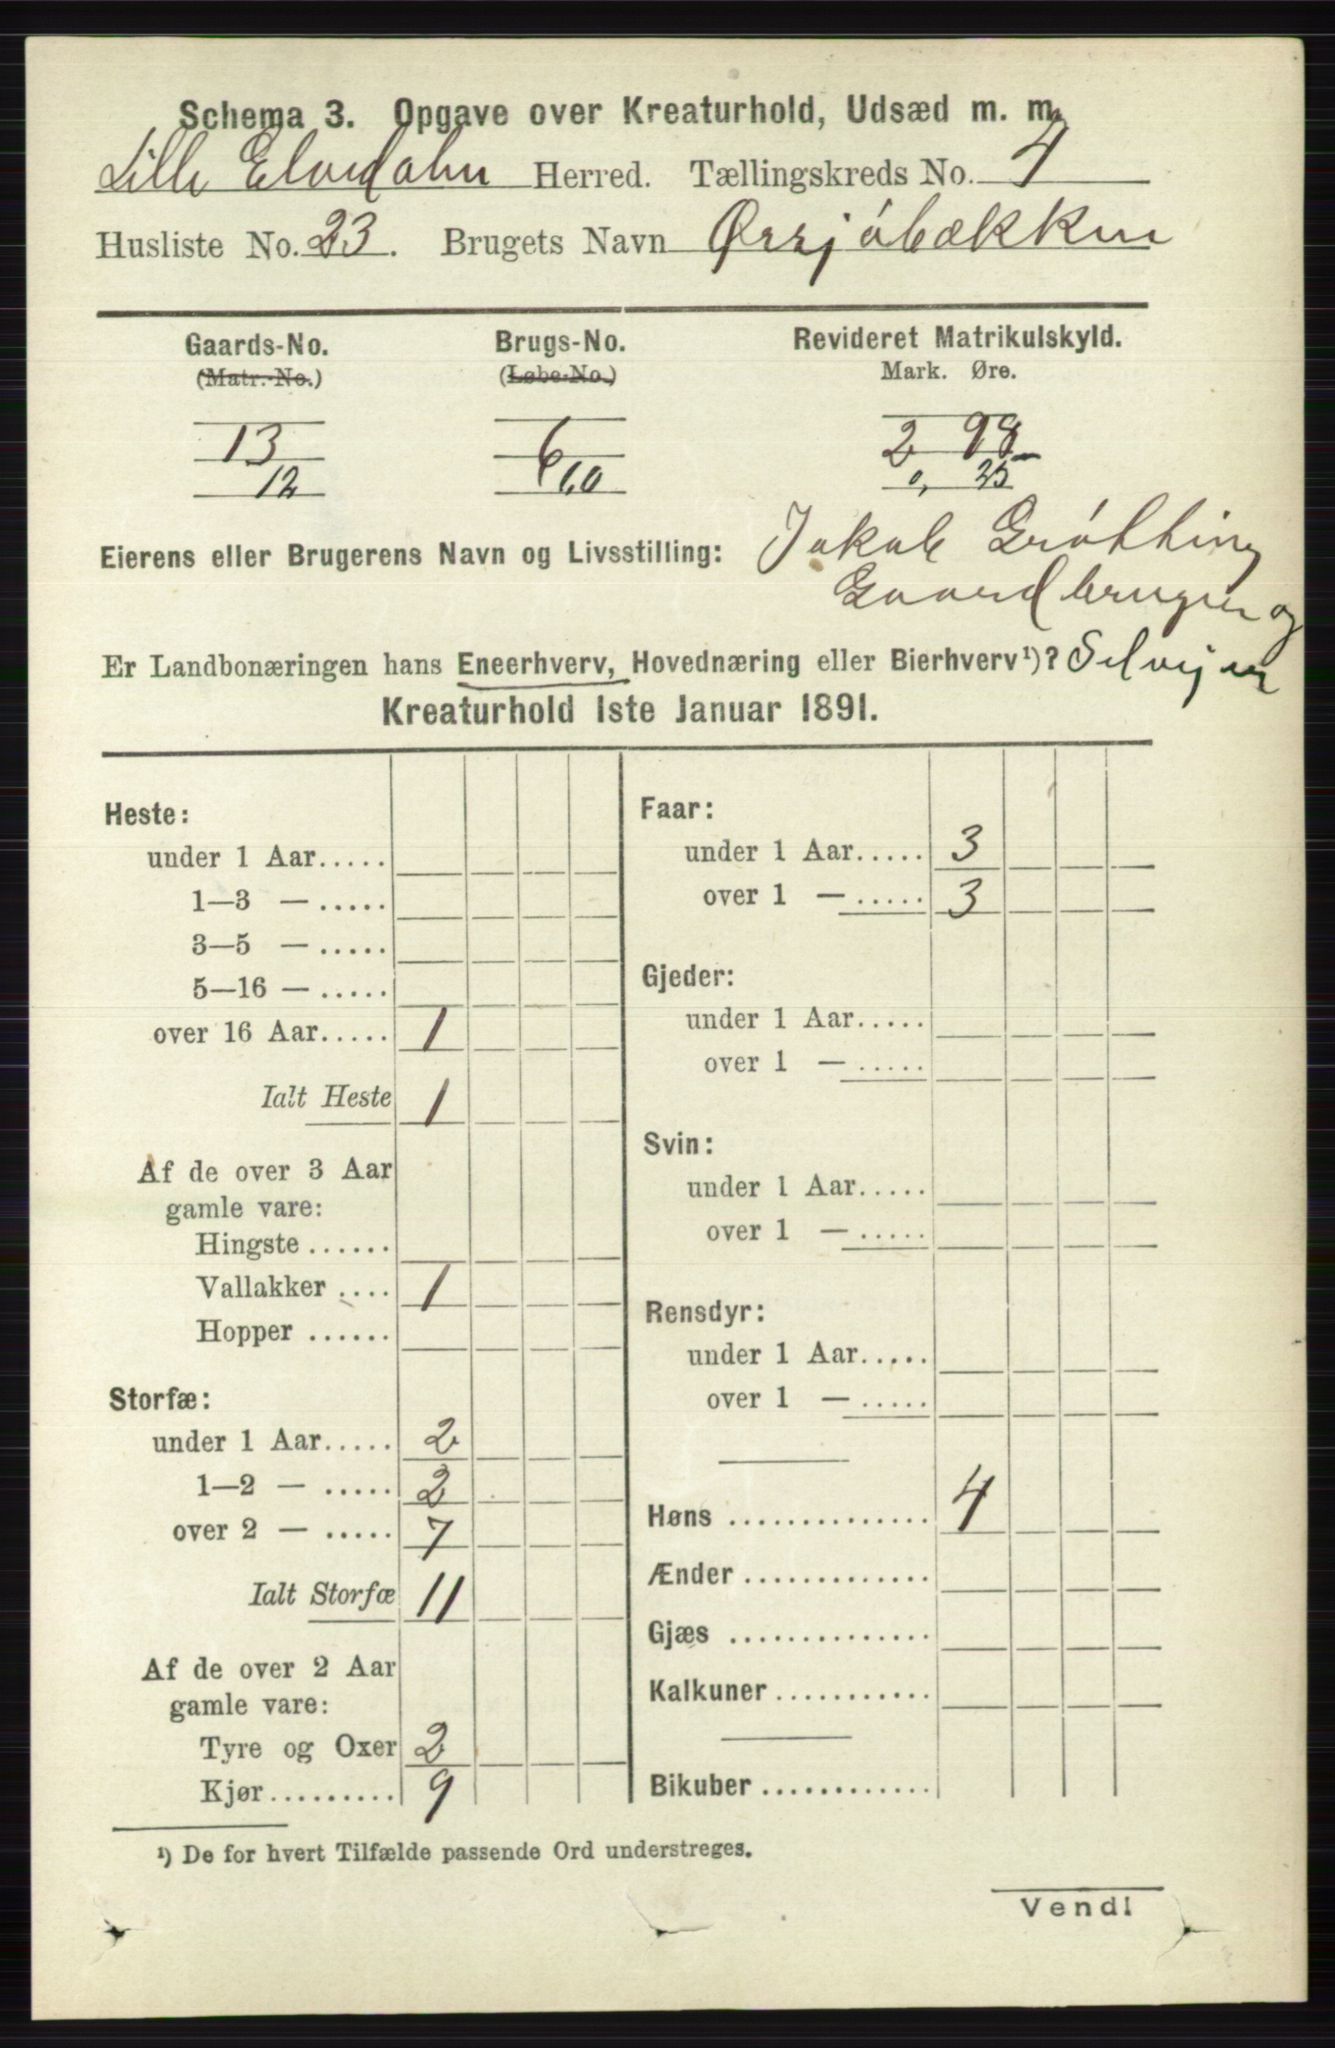 Schema 3. Opgave over Kreaturhold, Udsæd m. m.
Lille Elvedalen Herred. Tællingskreds No. 4
Husliste No. 23. Brugets Navn Øssjøbækken
Gaards-No. Brugs-No. Revideret Matrikulskyld.
(Matr.-No.) (Løbe-No.) Mark. Øre.
13 6 2 98
12 10 0, 25
Eierens eller Brugerens Navn og Livsstilling: Jakob Grøtting
Gaardbruger og
Er Landbonæringen hans Eneerhverv, Hovednæring eller Bierhverv¹)? Selvejer
Kreaturhold 1ste Januar 1891.
Heste:
under 1 Aar.....
1—3 — .....
3—5 — .....
5—16 — .....
over 16 Aar..... 1
Ialt Heste 1
Af de over 3 Aar
gamle vare:
Hingste ......
Vallakker .... 1
Hopper ......
Storfæ:
under 1 Aar..... 2
1—2 — ..... 2
over 2 — ..... 7
Ialt Storfæ 11
Af de over 2 Aar
gamle vare:
Tyre og Oxer 2
Kjør......... 9
Faar:
under 1 Aar..... 3
over 1 — ..... 3
Gjeder:
under 1 Aar.....
over 1 — .....
Svin:
under 1 Aar.....
over 1 — .....
Rensdyr:
under 1 Aar.....
over 1 — .....
Høns .............. 4
Ænder .............
Gjæs ..............
Kalkuner...........
Bikuber ............
¹) De for hvert Tilfælde passende Ord understreges.
Vend!